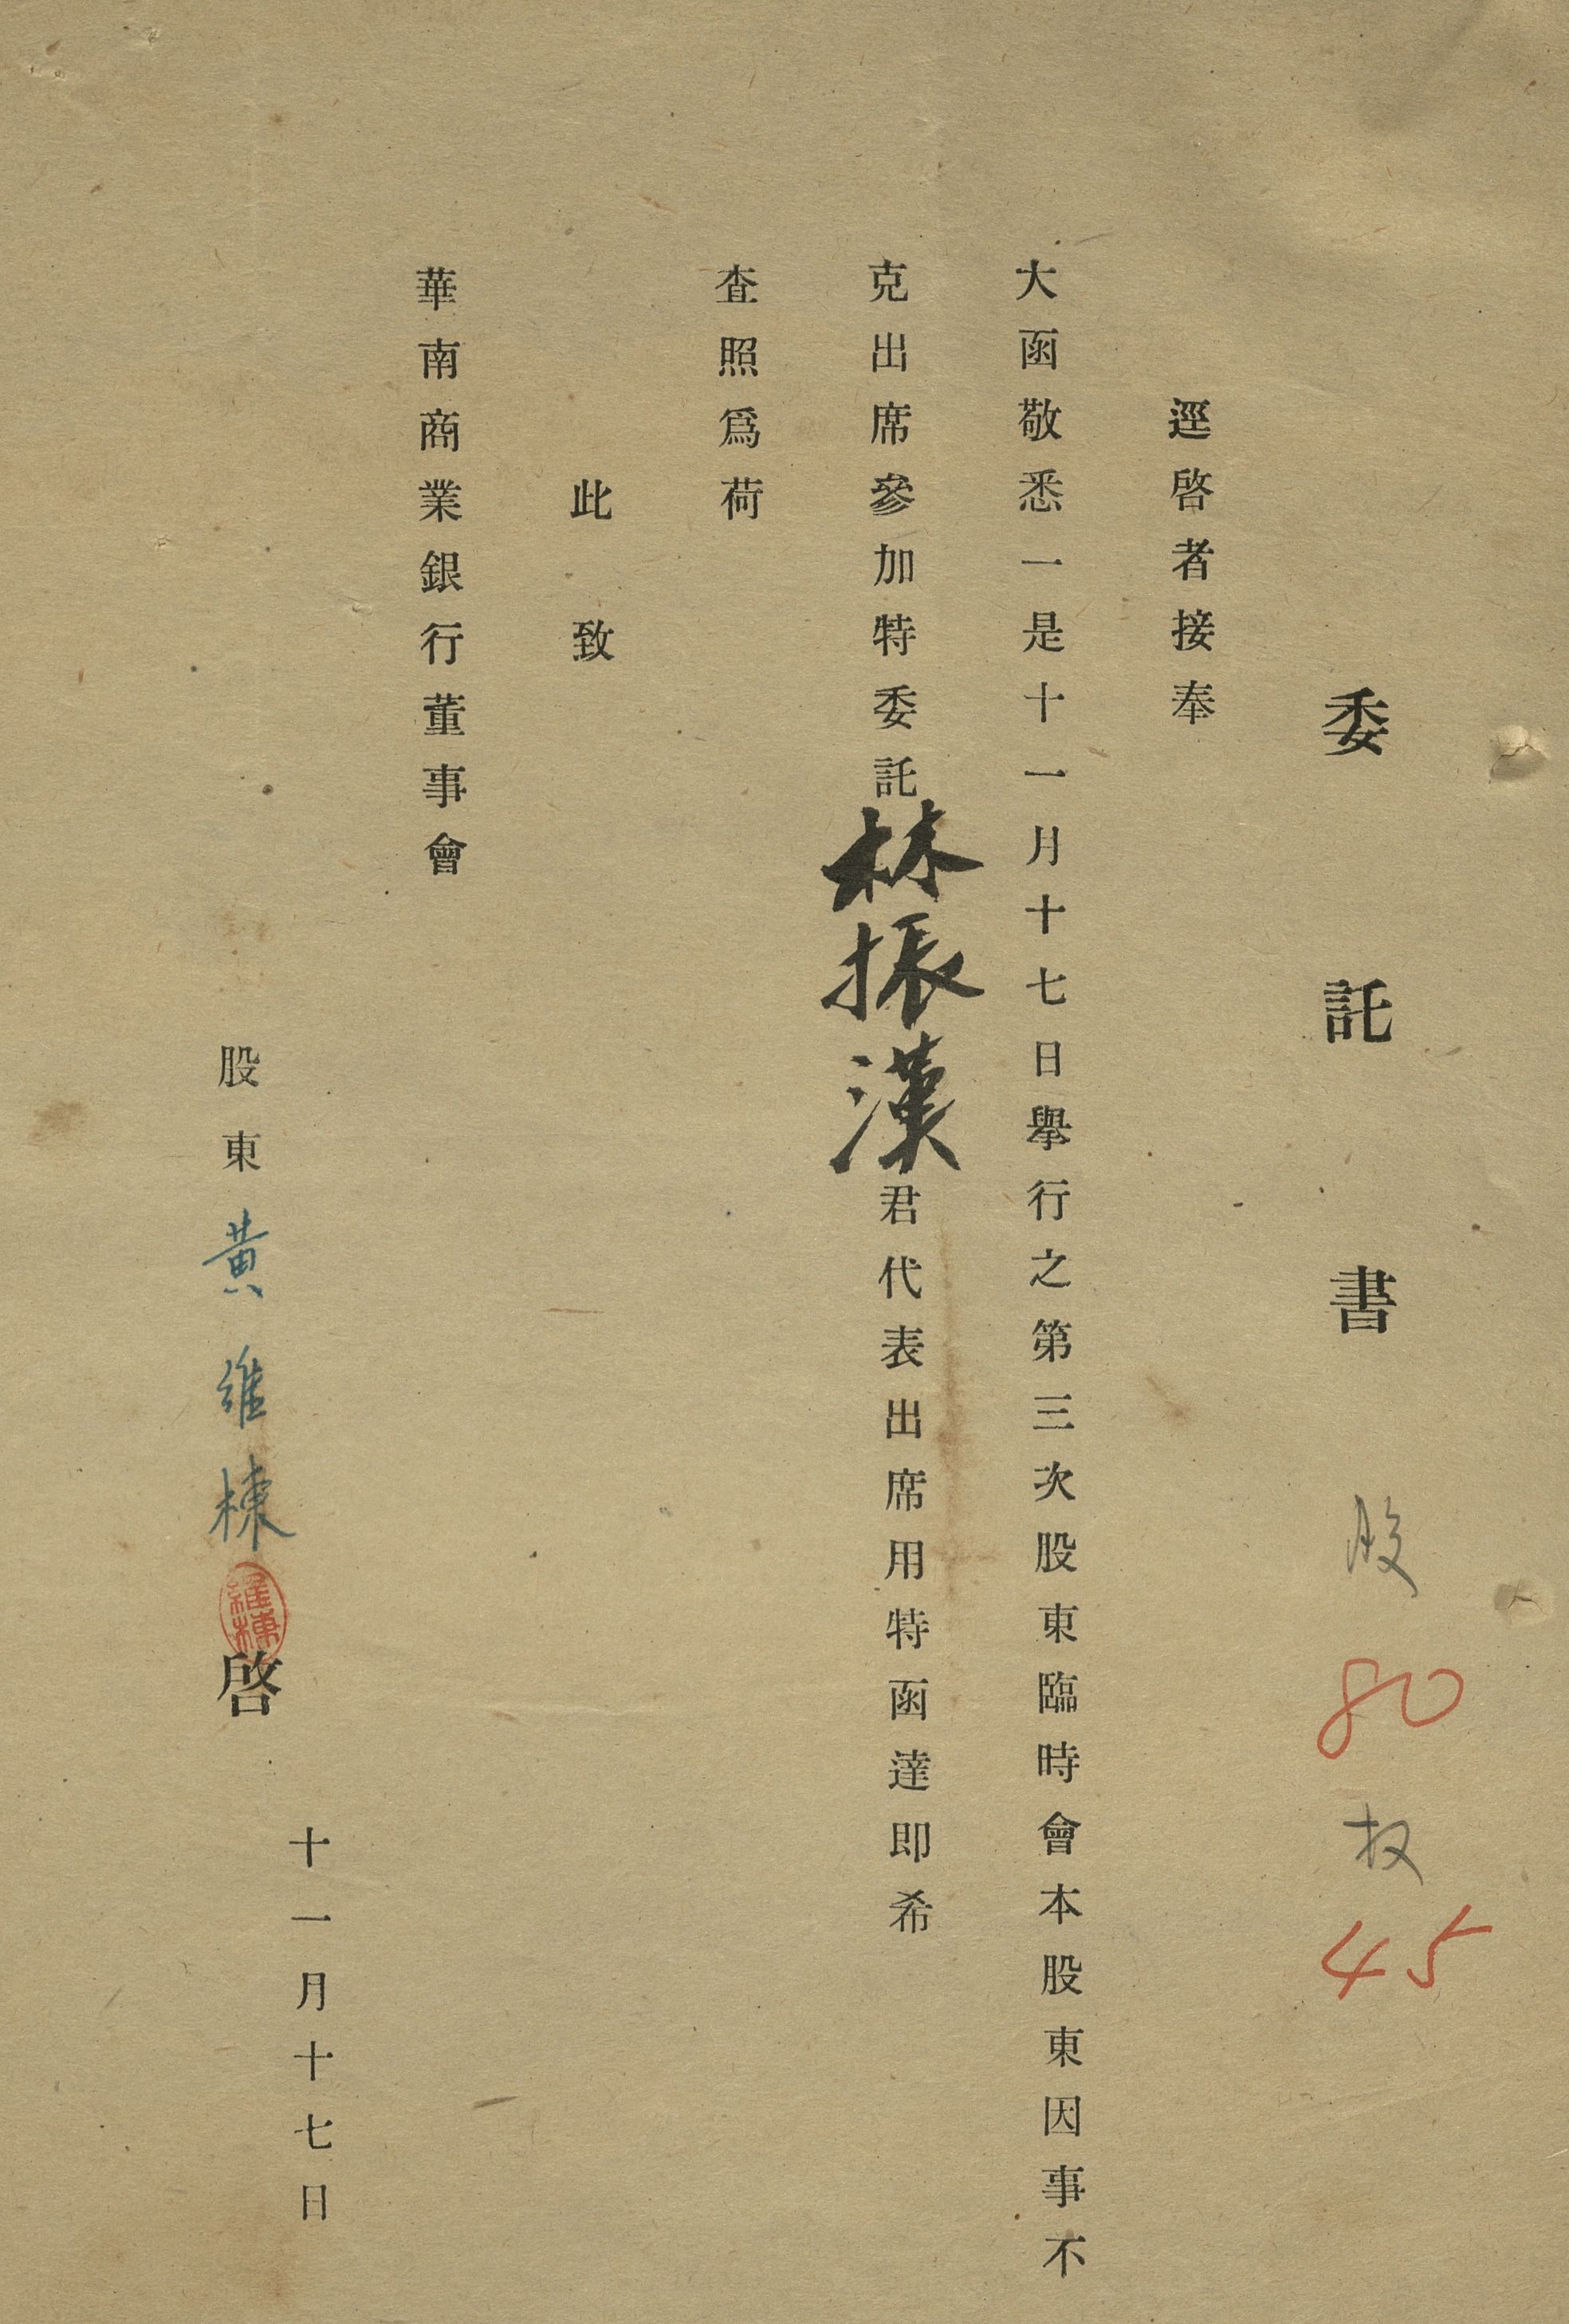 委託書 股 80 权 45
逕啓者接奉
大函敬悉一是十一月十七日舉行之第三次股東臨時會本股東因事不
克出席參加特委託林振漢君代表出席用特函達即希
查照爲荷
此致
華南商業銀行董事會
十一月十七日
股東黃維棟啓
維棟